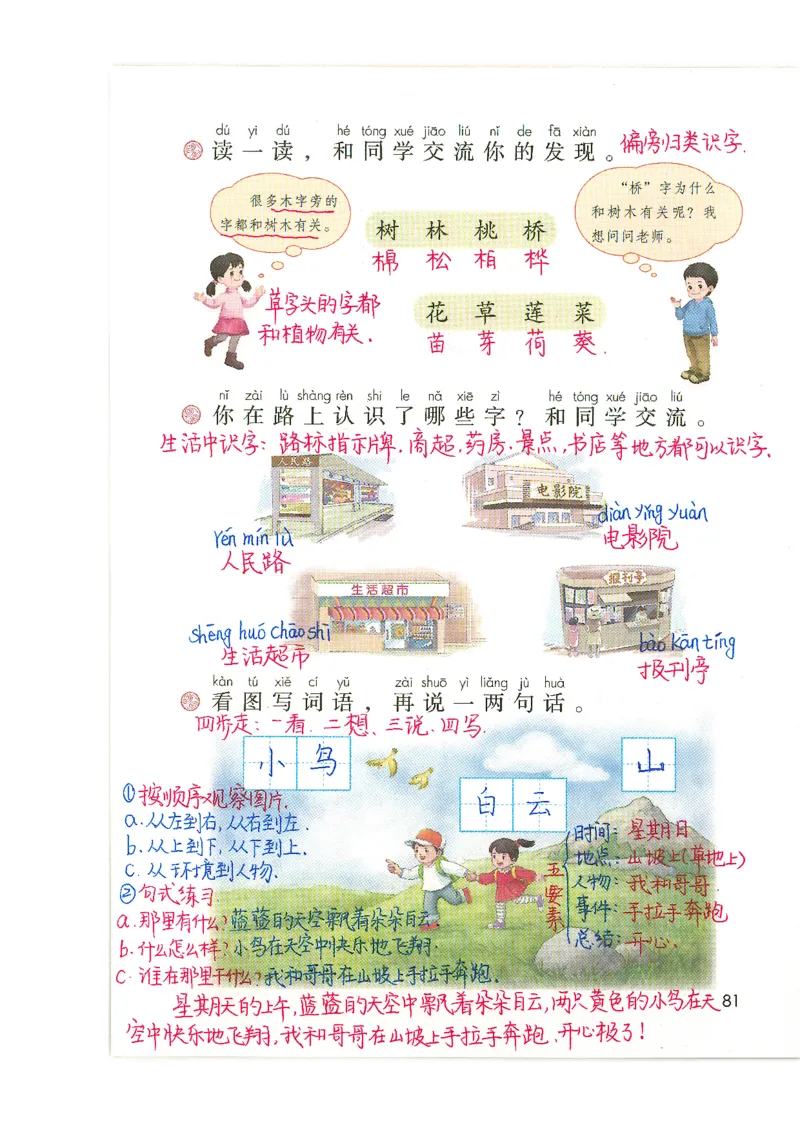 dú yi dú hé tóng xué jiāo liú nǐ de fā xiàn
读一读，和同学交流你的发现。
偏旁归类识字.
很多木字旁的
字都和树木有关。
“桥”字为什么
和树木有关呢？我
想问问老师。
树 林 桃 桥
棉 松 柏 桦
草字头的字都
和植物有关.
花 草 莲 菜
苗 芽 荷 葵.
nǐ zài lù shàng rèn shi le nǎ xiē zì hé tóng xué jiāo liú
你在路上认识了哪些字？和同学交流。
生活中识字：路标指示牌.商超,药房.景点,书店等地方都可以识字.
人民路
rén mín lù
人民路
电影院
diàn yǐng yuàn
电影院
生活超市
shēng huó chāo shì
生活超市
报刊亭
bào kān tíng
报刊亭
kàn tú xiě cí yǔ zài shuō yì liǎng jù huà
看图写词语，再说一两句话。
四步走：一看.二想、三说.四写.
小鸟
白云
山
①按顺序观察图片.
a.从左到右,从右到左.
b.从上到下,从下到上.
c.从环境到人物.
②句式练习
a.那里有什么?蓝蓝的天空飘着朵朵白云
b.什么怎么样?小鸟在天空中快乐地飞翔.
c.谁在那里干什么?我和哥哥在山坡上手拉手奔跑.
五要素
时间：星期日
地点：山坡上(草地上)
人物：我和哥哥.
事件：手拉手奔跑
总结：开心.
星期天的上午,蓝蓝的天空中飘着朵朵白云,两只黄色的小鸟在天
空中快乐地飞翔,我和哥哥在山坡上手拉手奔跑、开心极了!
81